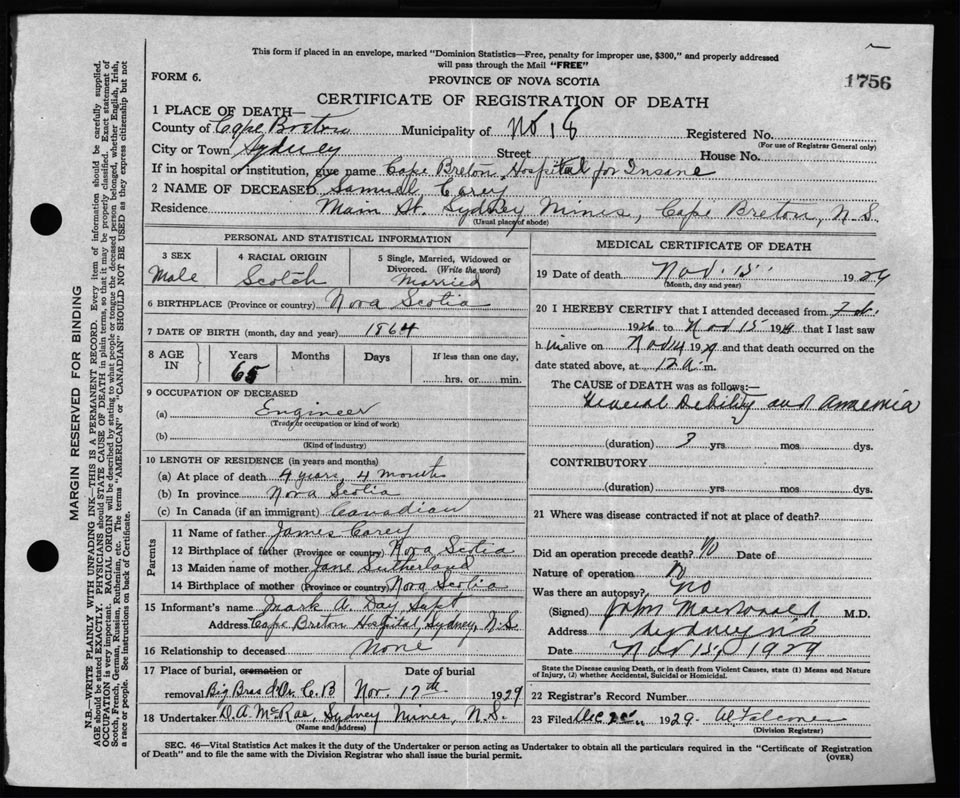 This form if placed in an envelope, marked "Dominion Statistics—Free, penalty for improper use, $300," and properly addressed
will pass through the Mail "FREE"
FORM 6.
PROVINCE OF NOVA SCOTIA
1756
CERTIFICATE OF REGISTRATION OF DEATH
1 PLACE OF DEATH—
County of Cape Breton Municipality of No 18 Registered No.
(For use of Registrar General only)
City or Town Sydney Street House No.
If in hospital or institution, give name Cape Breton Hospital for Insane
2 NAME OF DECEASED Samuel Carey
Residence Main St. Sydney Mines, Cape Breton, N.S.
(Usual place of abode)
PERSONAL AND STATISTICAL INFORMATION
3 SEX 4 RACIAL ORIGIN 5 Single, Married, Widowed or
Divorced. (Write the word)
Male Scotch Married
6 BIRTHPLACE (Province or country) Nova Scotia
7 DATE OF BIRTH (month, day and year) 1864
8 AGE IN Years Months Days If less than one day,
65 hrs. or min.
9 OCCUPATION OF DECEASED
(a) Engineer
(Trade or occupation or kind of work)
(b)
(Kind of industry)
10 LENGTH OF RESIDENCE (in years and months)
(a) At place of death 4 years, 4 months
(b) In province Nova Scotia
(c) In Canada (if an immigrant) Canadian
Parents
11 Name of father James Carey
12 Birthplace of father (Province or country) Nova Scotia
13 Maiden name of mother Jane Sutherland
14 Birthplace of mother (Province or country) Nova Scotia
15 Informant's name Mark A. Day, Supt
Address Cape Breton Hospital, Sydney, N.S.
16 Relationship to deceased None
17 Place of burial, cremation or Date of burial
removal Big Bras d'Or C.B Nov. 17th 1929
18 Undertaker D.A. McRae, Sydney Mines, N.S.
(Name and address)
MEDICAL CERTIFICATE OF DEATH
19 Date of death Nov. 15 1929
(Month, day and year)
20 I HEREBY CERTIFY that I attended deceased from
1926 to Nov 15 1929 that I last saw
h im alive on Nov 14 1929 and that death occurred on the
date stated above, at 12 a m.
The CAUSE of DEATH was as follows:—
General Debility and Anaemia
(duration) yrs. mos. dys.
CONTRIBUTORY
(duration) yrs. mos. dys.
21 Where was disease contracted if not at place of death?
Did an operation precede death? No Date of
Nature of operation
Was there an autopsy? No
(Signed) John MacDonald M.D.
Address Sydney NS
Date Nov 15, 1929
State the Disease causing Death, or in death from Violent Causes, state (1) Means and Nature
of Injury, (2) whether Accidental, Suicidal or Homicidal.
22 Registrar's Record Number
23 Filed Dec 1929
(Division Registrar)
SEC. 46—Vital Statistics Act makes it the duty of the Undertaker or person acting as Undertaker to obtain all the particulars required in the "Certificate of Registration
of Death" and to file the same with the Division Registrar who shall issue the burial permit.
(OVER)
MARGIN RESERVED FOR BINDING
N.B.—WRITE PLAINLY WITH UNFADING INK—THIS IS A PERMANENT RECORD. Every item of information should be carefully supplied.
AGE should be stated EXACTLY. PHYSICIANS should STATE CAUSE OF DEATH in plain terms, so that it may be properly classified. Exact statement of
OCCUPATION is very important. RACIAL ORIGIN will be described by stating to what people or tongue the deceased person belonged, whether English, Irish,
Scotch, French, German, Russian, Ruthenian, etc. The terms "AMERICAN" or "CANADIAN" SHOULD NOT BE USED as they express citizenship but not
a race or people. See instructions on back of Certificate.